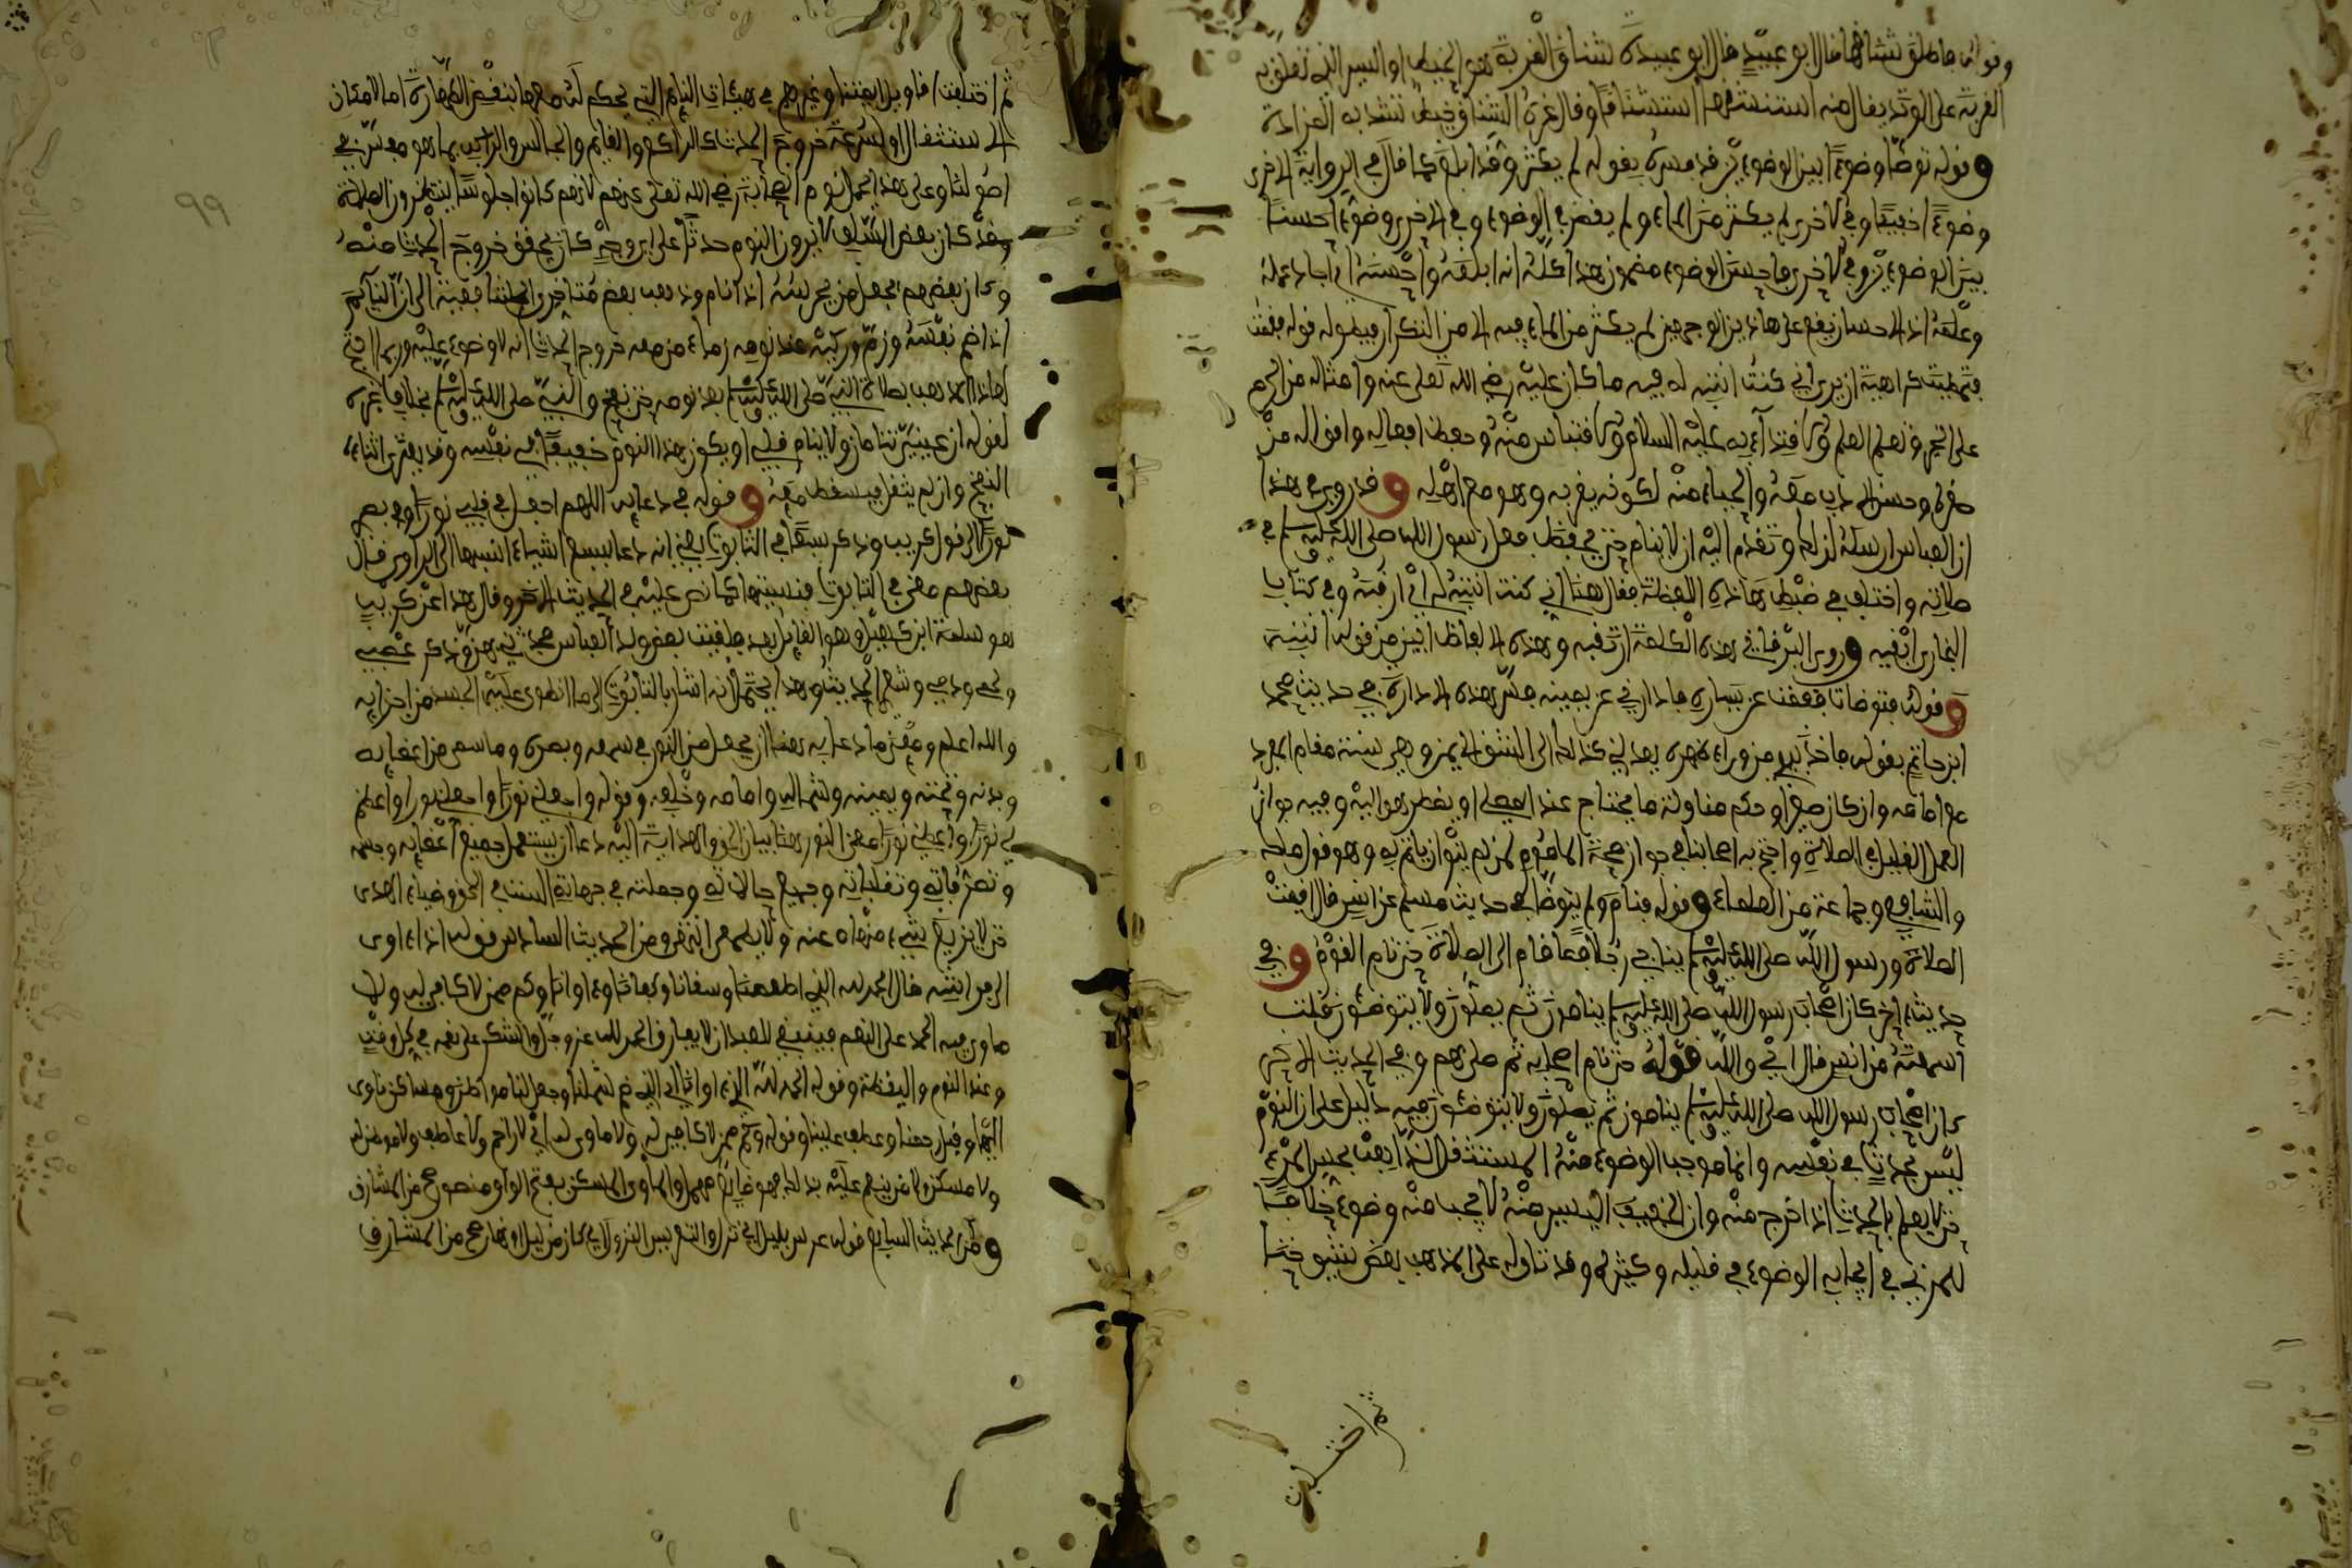 وقوله فاطلق شناقها قال ابو عبيد قال ابو عبيدة شناق القربة هو الخيط او السير الذي تعلق به
القربة على الوتد يقال منه اشنقتها اشناقا وقال غيره الشناق خيط تشد به
وقوله توضأ وضوءا بين الوضوءين قد فسره بقوله لم يكثر وقد ابلغ كما قال في الرواية الاخرى
وضوءا خفيفا وفي الاخرى لم يكثر من الماء ولم يقصر في الوضوء وفي الاخرى وضوءا حسنا
بين الوضوءين وفي الاخرى فاحسن الوضوء هذا كله انه ابلغه واحسنه اي اجاد عمله
اذ الاحسان يقع على هاذين الوجهين لم يكثر من الماء فيه الا من التكرار قوله فقمت
فتمطيت كراهية ان يرى اني كنت انتبه له فيه ما كان عليه رضي الله تعلى عنه وامثاله من الحرص
على الخير وتعلم العلم والاقتداء به عليه السلام والاقتباس منه وحفظ افعاله واقواله من
صغره وحسن الادب معه والحياء منه لكونه بقربه وهو مع اهله وقد روي في هذا
ان العباس ارسله لذلك وتقدم اليه ان لا ينام حتى يحفظ فعل رسول الله صلى الله عليه وسلم في
صلاته واختلف في ضبط هاذه اللفظة فقال هنا اني كنت انتبه له اي ارقبه وفي كتاب
البخاري ابقيه وروى البرقاني هذه الكلمة ارتقبه وهذه الالفاظ ابين من قوله انتبه
وقوله فتوضأ فقمت عن يساره فادارني عن يمينه فسر هذه الادارة في حديث محمد
ابن حاتم بقوله فاخذ بيدي من وراء ظهره يعدلني كذلك الى الشق الايمن وهي سنة مقام الواحد
مع امامه وان كان صغيرا وحكم مناولة ما يحتاج عند المصلي او يضطر هو اليه وفيه جواز
العمل القليل في الصلاة واحتج به اصحابنا في جواز صحة الماموم لمن لم ينو ان ياتم به وهو قول ملك
والشافعي وجماعة من العلماء وقوله فنام ولم يتوضأ في حديث مسلم عن انس قال اقيمت
الصلاة ورسول الله صلى الله عليه وسلم يناجي رجلا فما قام الى الصلاة حتى نام القوم وفي
حديث اخر كان اصحاب رسول الله صلى الله عليه وسلم ينامون ثم يصلون ولا يتوضئون قلت
اسمعته من انس قال اي والله قوله حتى نام اصحابه ثم صلى بهم وفي الحديث الاخر
كان اصحاب رسول الله صلى الله عليه وسلم ينامون ثم يصلون ولا يتوضئون فيه دليل على ان النوم
ليس بحدث في نفسه وانما موجب الوضوء منه المستثقل الذي
حتى لا يعلم بالحدث اذا خرج منه وان الخفيف اليسير منه لا يجب منه وضوء خلافا
للمزني في ايجابه الوضوء في قليله وكثيره وقد تاوله على المذهب بعض شيوخنا
ثم اختلف
99
ثم اختلفت اقاويل ايمتنا وغيرهم في هيئات النايم التي يحكم له معها بنقض الطهارة اما لامكان
الاستثقال او لسرعة خروج الحدث كالراكع والقايم والجالس والراكب بما هو مفسر في
اصولنا وعلى هذا يحمل نوم الصحابة رضي الله تعلى عنهم لانهم كانوا جلوسا ينتظرون الصلاة
وقد كان بعض السلف لا يرون النوم حدثا على اي وجه كان حتى يحقق خروج الحدث منه
وكان بعضهم يجعل من يحرسه اذا نام وذهب بعض متاخري ايمتنا الى ان النايم
اذا ضم نفسه وزم وركيه عند نومه زما من معه خروج الحدث انه لا وضوء عليه وربما احتج
لهاذا المذهب بصلاة النبي صلى الله عليه وسلم بعد نومه حتى نفخ والنبي صلى الله عليه وسلم بخلاف غيره
لقوله ان عيني تنامان ولا ينام قلبي او يكون هذا النوم خفيفا في نفسه وقد يعتري اثناءه
النفخ وان لم يثقل فيسقط معه وقوله في دعايه اللهم اجعل في قلبي نورا وفي بصري
نورا الى قول كريب وذكر سبعا في التابوت يعني انه دعا بسبع اشياء انسيها الراوي قال
بعضهم معنى في التابوت فنسيتها كما نص عليه في الحديث الاخر وقال هذا عن كريب
هو سلمة ابن كهيل وهو القايل بعد فلقيت بعض ولد العباس فحدثني بهن وذكر عصبي
ولحمي ودمي وشعري الحديث وهذا يحتمل انه اشار بالتابوت الى ما انطوى عليه الجسد من اجزايه
والله اعلم ومعنى ما دعا به هنا ان يجعل من النور في سمعه وبصره وما سمى من اعضايه
وبدنه وتحته ويمينه وشماله وامامه وخلفه وقوله واجعل لي نورا واجعلني نورا واعظم
لي نورا واعطني نورا معنى النور هنا بيان الحق والهداية اليه دعا ان يستعمل جميع اعضايه وجسمه
وتصرفاته وتقلباته وجميع حالاته وجملته في جهاته الست في الحق وضياء الهدى
حتى لا يزيغ شيء منها عنه ومن الحديث السادس قوله اذا اوى
الى فراشه قال الحمد لله الذي اطعمنا وسقانا وكفانا وءاوانا وكم ممن لا كافي له ولا
ماوي فيه الحمد على النعم فينبغي للعبد ان لا يفارق الحمد لله عز وجل والشكر على نعمه في كل وقت
وعند النوم واليقظة وقوله الحمد لله الذي ءاوانا اي الذي ضم شملنا وجعل لنا مواطن ومساكن ناوى
اليها وقيل رحمنا وعطف علينا وقوله وكم ممن لا كافي له ولا ماوي له اي لا راحم ولا عاطف ولا موطن له
ولا مسكن ولا من ينعم عليه بذلك فهو ضايع مهمل والماوى المسكن بفتح الواو منصوص صح من المشارق
ومن الحديث السابع قوله عرس بليل اي نزل والتعريس النزول اي كان من ليل او نهار صح من المشارق